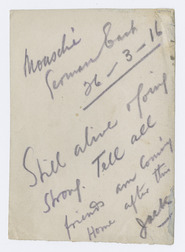 Monschi
German East
26-3-16
Still alive & going
strong. Tell all
friends am coming
Home after this
Jack